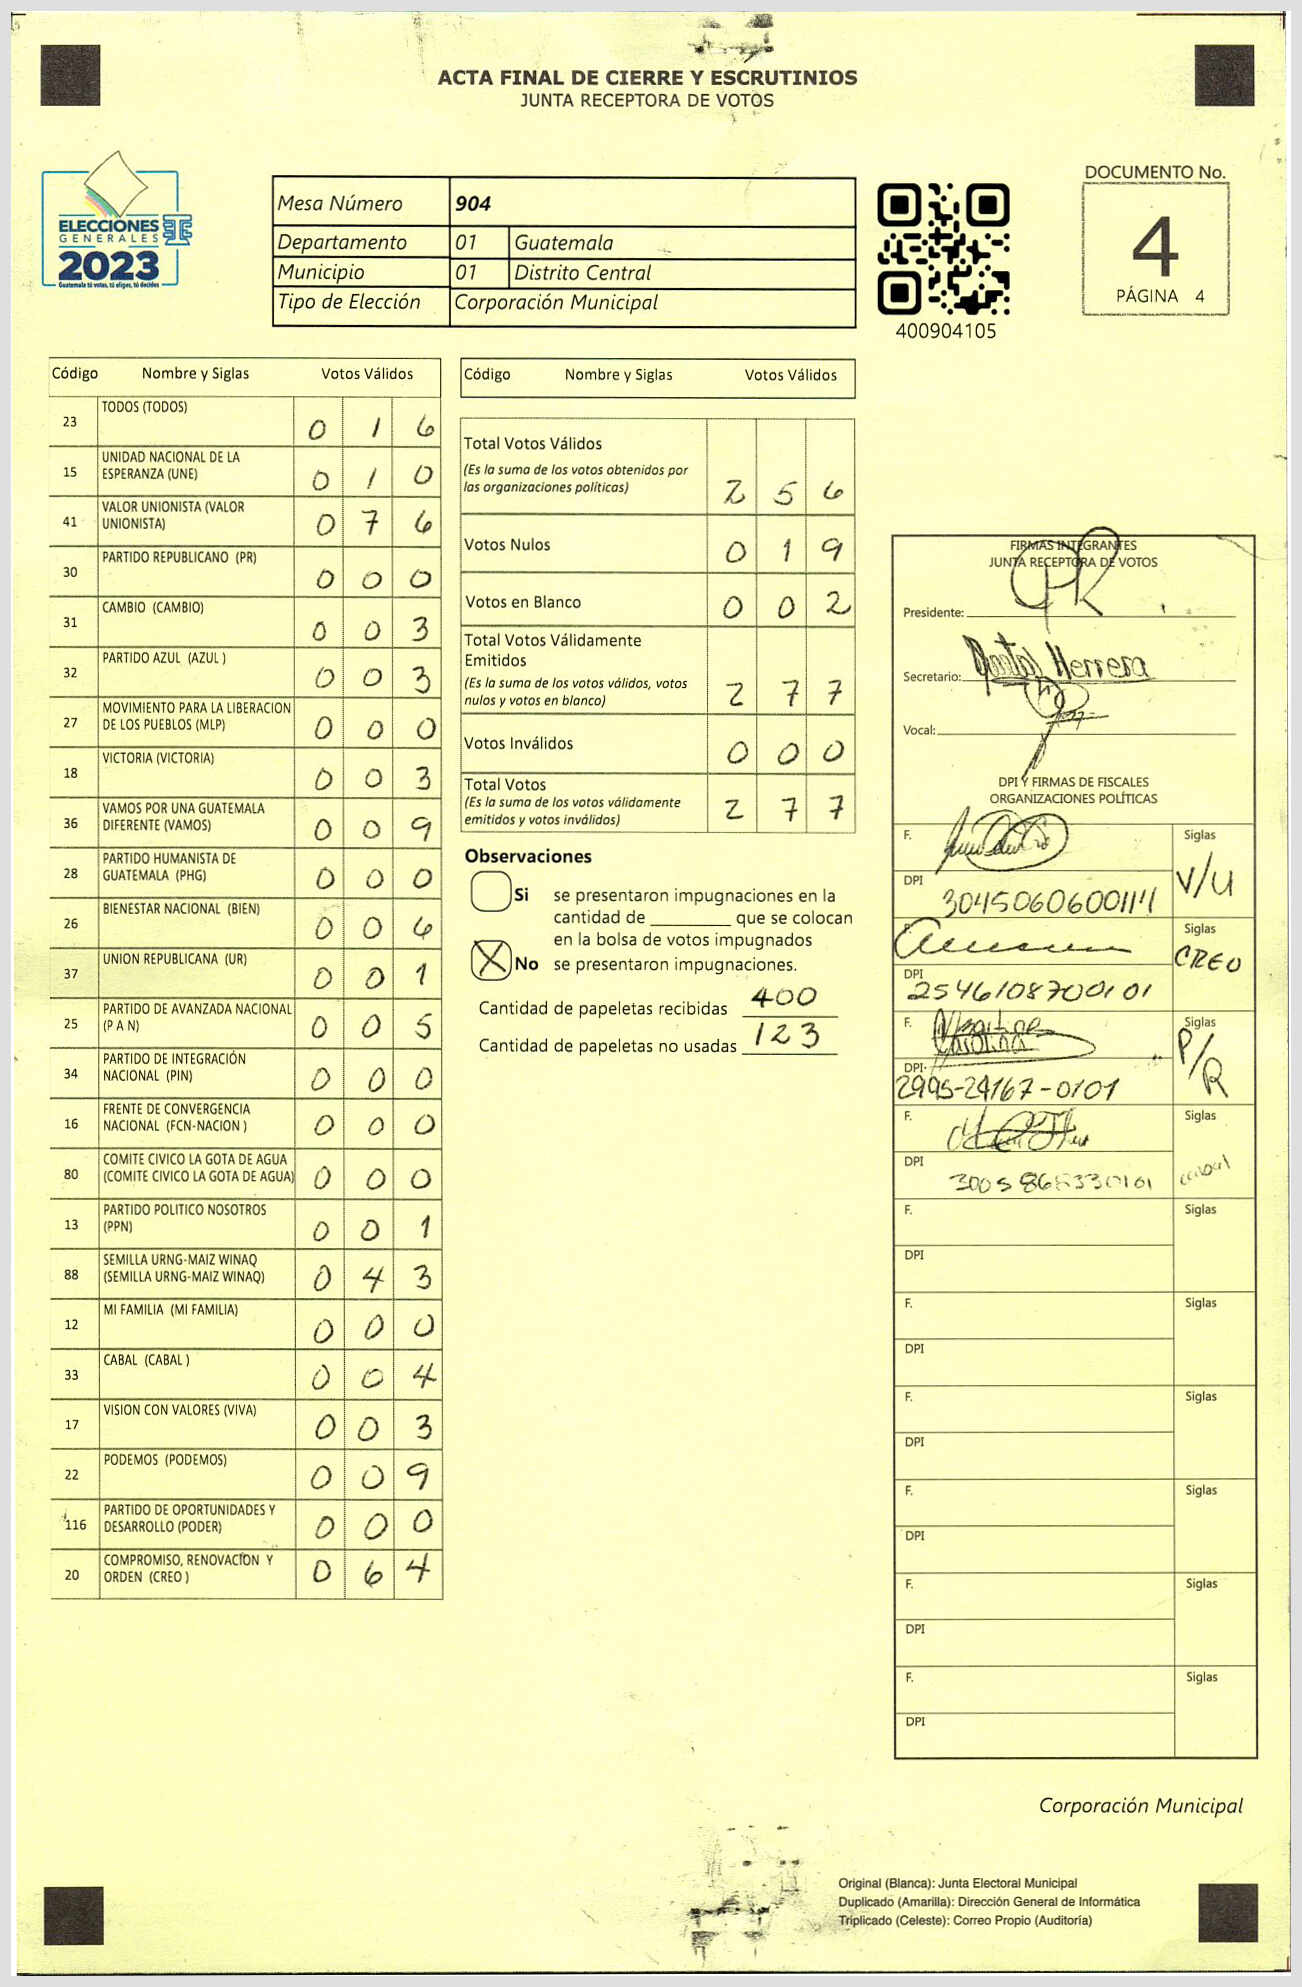 ACTA FINAL DE CIERRE Y ESCRUTINIOS
JUNTA RECEPTORA DE VOTOS
ELECCIONES
GENERALES
2023
Guatemala tú votas, tú eliges, tú decides
Mesa Número 904
Departamento 01 Guatemala
Municipio 01 Distrito Central
Tipo de Elección Corporación Municipal
400904105
DOCUMENTO No.
4
PÁGINA 4
Código Nombre y Siglas Votos Válidos
23 TODOS (TODOS) 0 1 6
15 UNIDAD NACIONAL DE LA
ESPERANZA (UNE) 0 1 0
41 VALOR UNIONISTA (VALOR
UNIONISTA) 0 7 6
30 PARTIDO REPUBLICANO (PR) 0 0 0
31 CAMBIO (CAMBIO) 0 0 3
32 PARTIDO AZUL (AZUL ) 0 0 3
27 MOVIMIENTO PARA LA LIBERACION
DE LOS PUEBLOS (MLP) 0 0 0
18 VICTORIA (VICTORIA) 0 0 3
36 VAMOS POR UNA GUATEMALA
DIFERENTE (VAMOS) 0 0 9
28 PARTIDO HUMANISTA DE
GUATEMALA (PHG) 0 0 0
26 BIENESTAR NACIONAL (BIEN) 0 0 6
37 UNION REPUBLICANA (UR) 0 0 1
25 PARTIDO DE AVANZADA NACIONAL
(P A N) 0 0 5
34 PARTIDO DE INTEGRACIÓN
NACIONAL (PIN) 0 0 0
16 FRENTE DE CONVERGENCIA
NACIONAL (FCN-NACION ) 0 0 0
80 COMITE CIVICO LA GOTA DE AGUA
(COMITE CIVICO LA GOTA DE AGUA) 0 0 0
13 PARTIDO POLITICO NOSOTROS
(PPN) 0 0 1
88 SEMILLA URNG-MAIZ WINAQ
(SEMILLA URNG-MAIZ WINAQ) 0 4 3
12 MI FAMILIA (MI FAMILIA) 0 0 0
33 CABAL (CABAL ) 0 0 4
17 VISION CON VALORES (VIVA) 0 0 3
22 PODEMOS (PODEMOS) 0 0 9
116 PARTIDO DE OPORTUNIDADES Y
DESARROLLO (PODER) 0 0 0
20 COMPROMISO, RENOVACION Y
ORDEN (CREO ) 0 6 4
Código Nombre y Siglas Votos Válidos
Total Votos Válidos
(Es la suma de los votos obtenidos por
las organizaciones políticas) 2 5 6
Votos Nulos 0 1 9
Votos en Blanco 0 0 2
Total Votos Válidamente
Emitidos
(Es la suma de los votos válidos, votos
nulos y votos en blanco) 2 7 7
Votos Inválidos 0 0 0
Total Votos
(Es la suma de los votos válidamente
emitidos y votos inválidos) 2 7 7
Observaciones
Si se presentaron impugnaciones en la
cantidad de ________ que se colocan
en la bolsa de votos impugnados
X No se presentaron impugnaciones.
Cantidad de papeletas recibidas 400
Cantidad de papeletas no usadas 123
FIRMAS INTEGRANTES
JUNTA RECEPTORA DE VOTOS
Presidente:
Secretario: Herrera
Vocal:
DPI Y FIRMAS DE FISCALES
ORGANIZACIONES POLÍTICAS
F. Siglas
V/U
DPI
F. Siglas
CREO
DPI 2546108700101
F. Siglas
P/R
Carolina
DPI
2995-24167-0101
F. Siglas
DPI
F. Siglas
DPI
F. Siglas
DPI
F. Siglas
DPI
F. Siglas
DPI
F. Siglas
DPI
F. Siglas
DPI
Corporación Municipal
Original (Blanca): Junta Electoral Municipal
Duplicado (Amarilla): Dirección General de Informática
Triplicado (Celeste): Correo Propio (Auditoría)